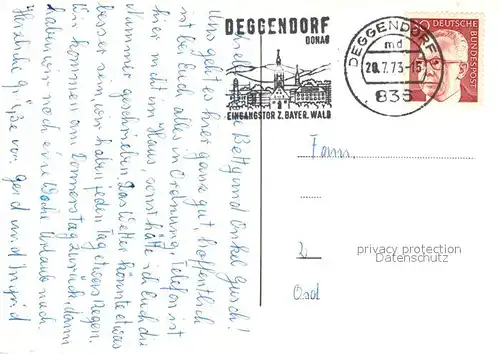 DEGGENDORF
DONAU
EINGANGSTOR Z. BAYER. WALD
DEGGENDORF
md
20.7.73-15
835
DEUTSCHE BUNDESPOST
Betty und Onkel Gusch!
Uns geht es hier ganz gut, hoffentlich
ist bei Euch alles in Ordnung, Telefon ist
hier nicht im Haus, sonst hätte ich Euch die
Nummer geschrieben. Das Wetter könnte etwas
besser sein, wir haben jeden Tag etwas Regen.
Wir kommen am Donnerstag zurück, dann
haben wir noch eine Woche Urlaub nach.
Herzliche Grüße von Gerd und Ingrid
Fam.
2
privacy protection
Datenschutz